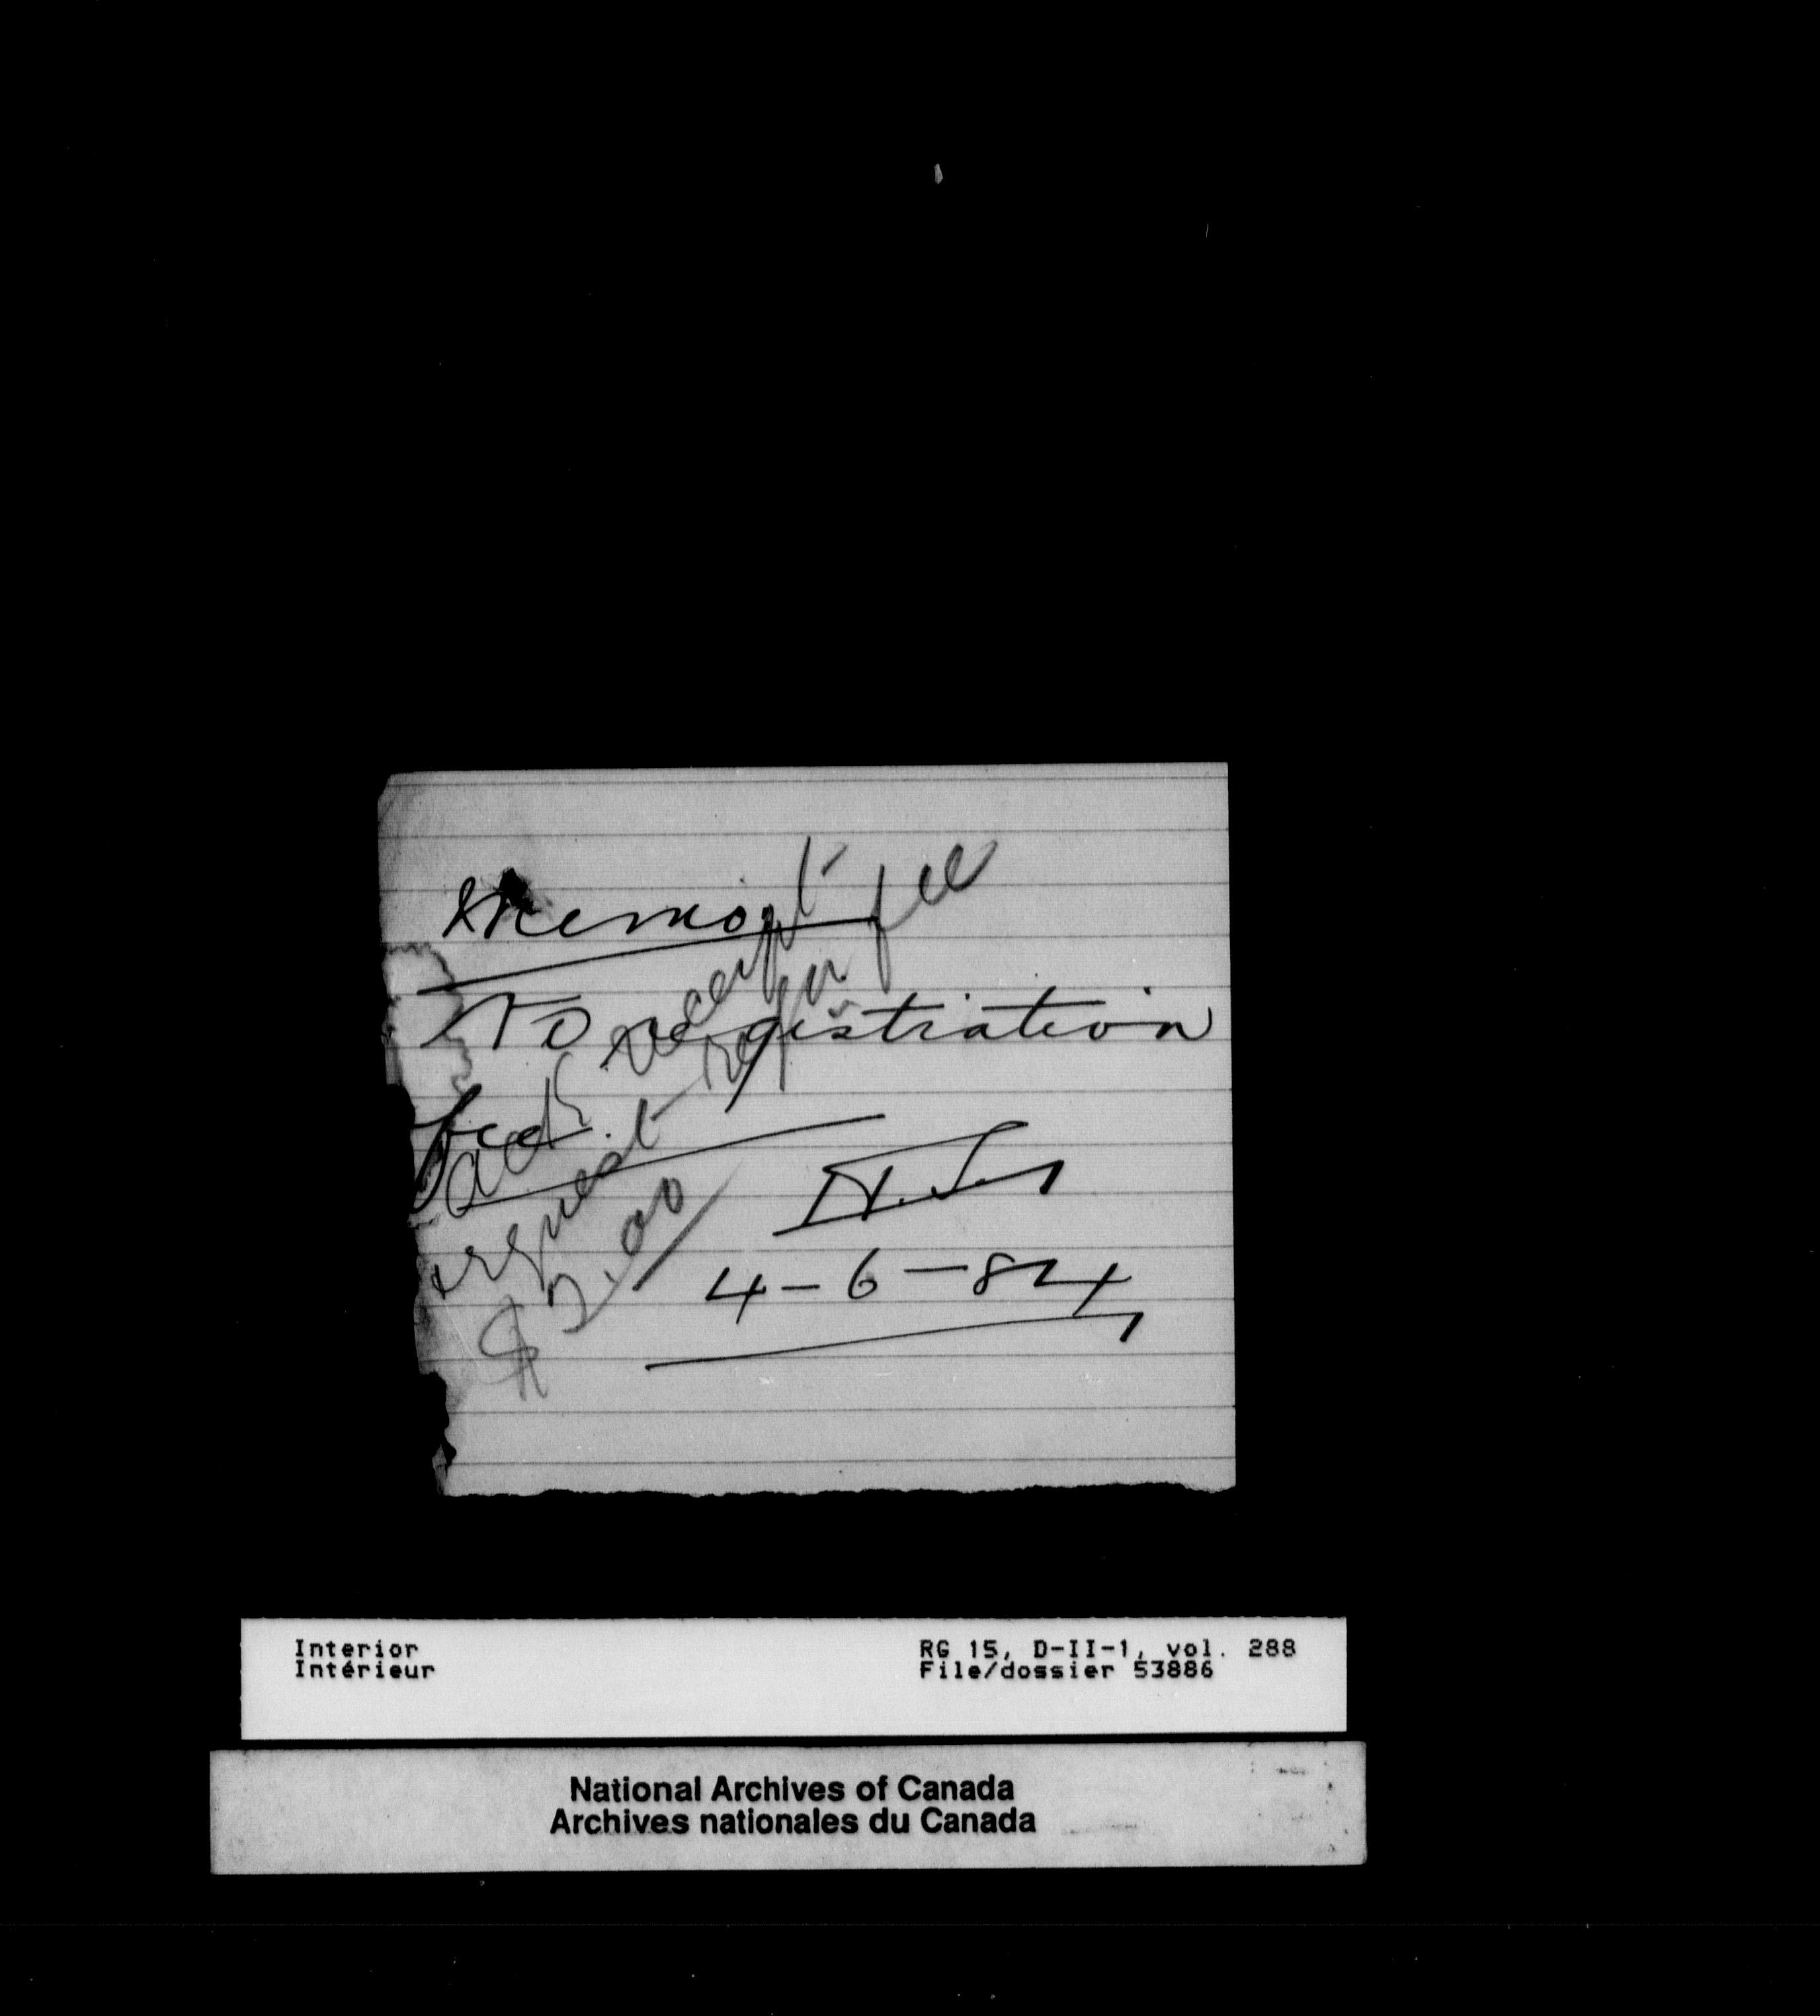 Memo.
No registration
fee.
H. S.
4-6-84
Ack receipt
request regn fee
$2.00
Interior
Intérieur
RG 15, D-II-1, vol. 288
File/dossier 53886
National Archives of Canada
Archives nationales du Canada